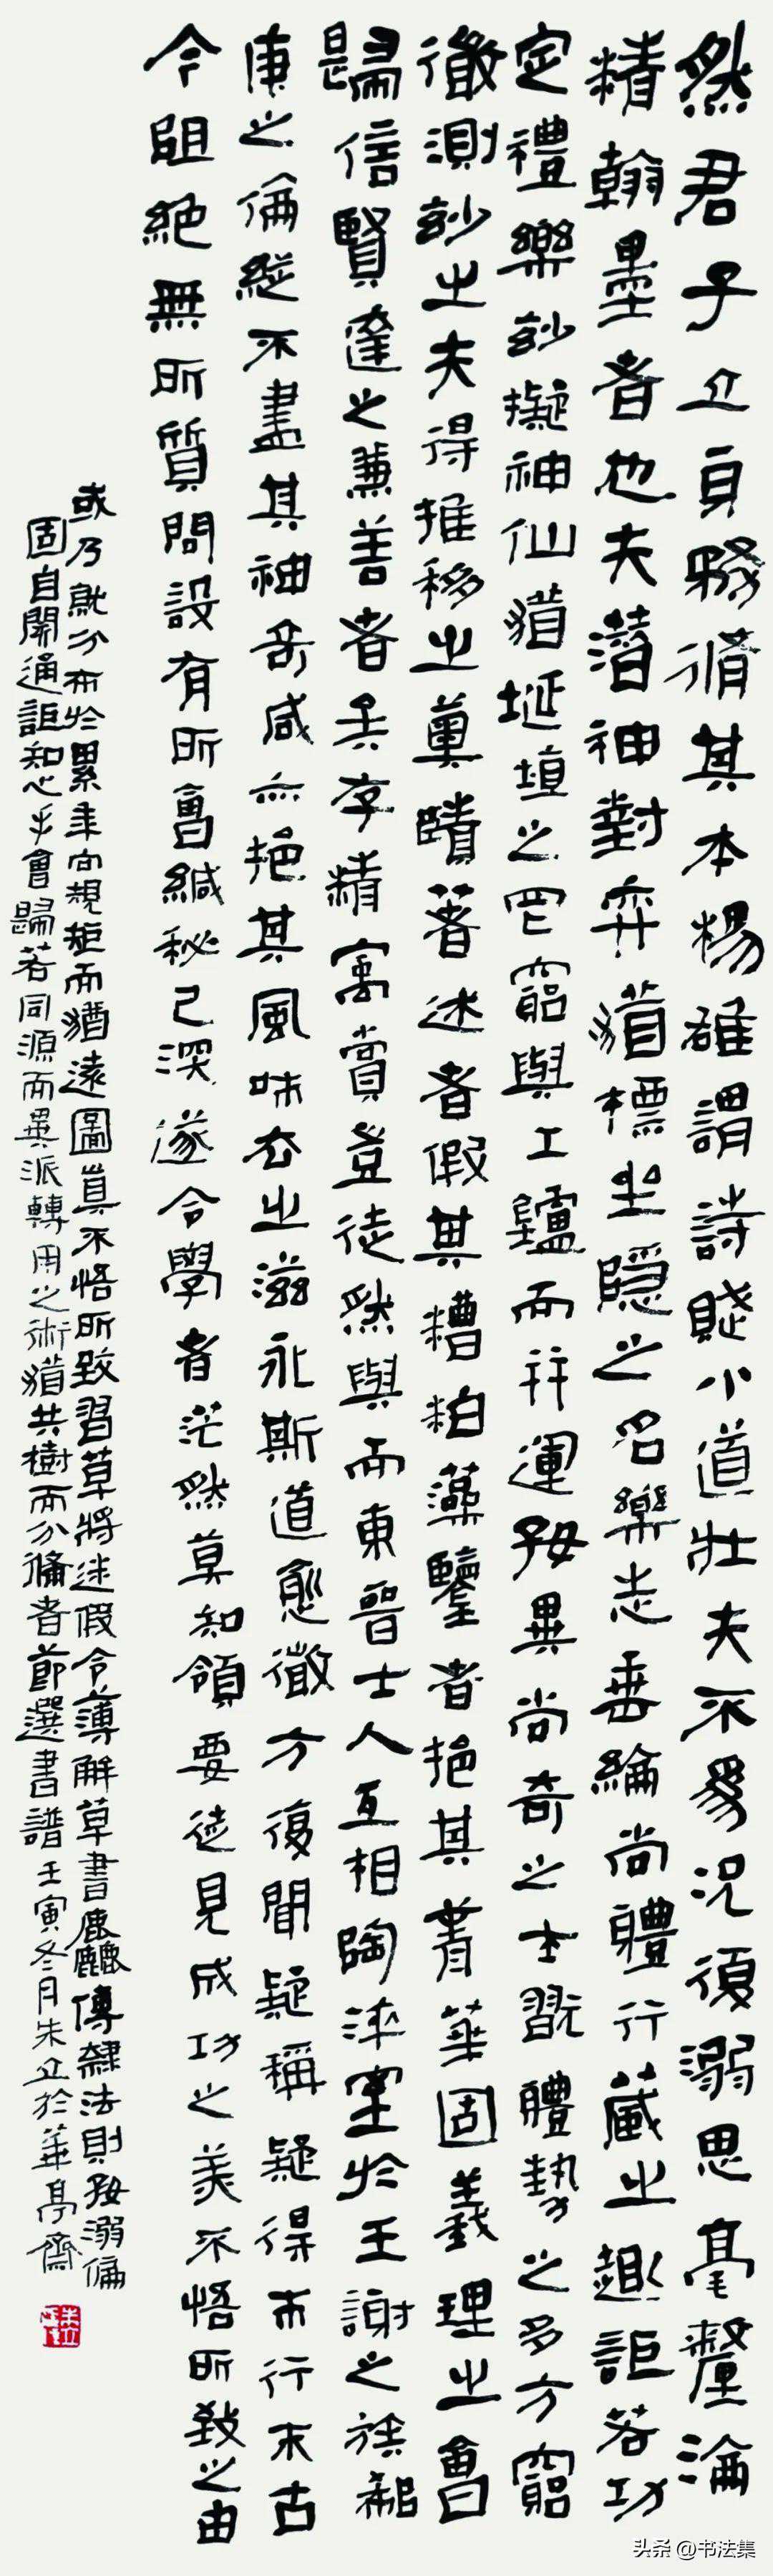 然君子立身務脩其本楊雄謂詩賦小道壯夫不爲況復溺思毫釐淪
精翰墨者也夫潛神對弈猶標坐隱之名樂志垂綸尚體行藏之趣詎若功
定禮樂妙擬神仙猶埏埴之罔窮與工鑪而並運好異尚奇之士翫體勢之多方窮
微測妙之夫得推移之奧賾著述者假其糟粕藻鑒者挹其菁華固義理之會
歸信賢達之兼善者矣存精寓賞豈徒然與而東晉士人互相陶淬室於王謝之族郗
庾之倫縱不盡其神奇咸亦挹其風味去之滋永斯道愈微方復聞疑稱疑得末行末古
今阻絕無所質問設有所會緘秘已深遂令學者茫然莫知領要徒見成功之美不悟所致之由
或乃就分布於累年向規矩而猶遠圖真不悟所致習草將迷假令薄解草書麤傳隸法則好溺偏
固自開通詎知心手會歸若同源而異派轉用之術猶共樹而分條者節選書譜壬寅冬月朱立於華亭齋
朱立
头条@书法集